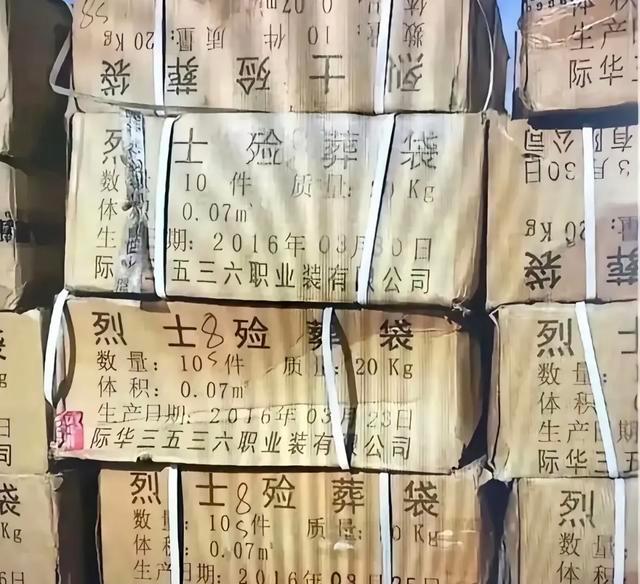 烈士殓葬袋
数 10 件 质量: 20 Kg
体 0.07m
体积
生产
际华
烈士殓葬袋
数 10 件 质量: Kg
体 0.07m³
生 日期: 2016年 03月30日
际 五三六职业装有限公司
有限公司
3月30日
20 Kg
葬袋
烈士8殓葬袋
数量: 10s件 质量: 20 Kg
体积: 0.07m³
生产日期: 2016年 03月23日
际华三五三六职业装有限公司
烈士
数量:
体积:
生产日期
际华三五
袋
Kg
日
公司
烈士8殓葬袋
数量: 10s件 质量: Kg
体积: 0.07m³
生产日期: 2016年 03月25日
烈士
数量:
体积:
生产日
袋
Kg